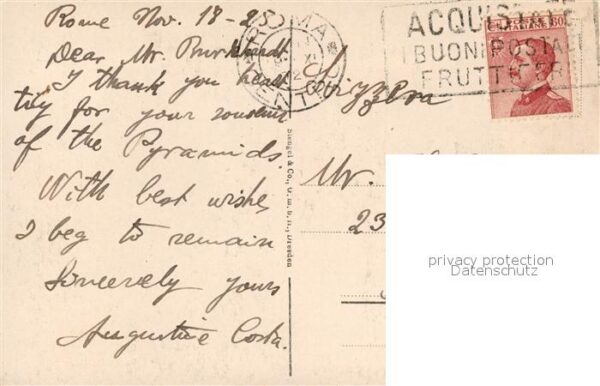 Rome Nov. 18-2
Dear Mr. Burkhardt
I thank you heart
tily for your
of the Pyramids.
With best wishes,
I beg to remain
Sincerely yours
Augustine Costa.
Stengel & Co., G.m.b.H., Dresden
ROMA
ACQUISTATE
I BUONI POSTALI
FRUTTIFERI
60
Svizzera
Mr.
23
privacy protection
Datenschutz